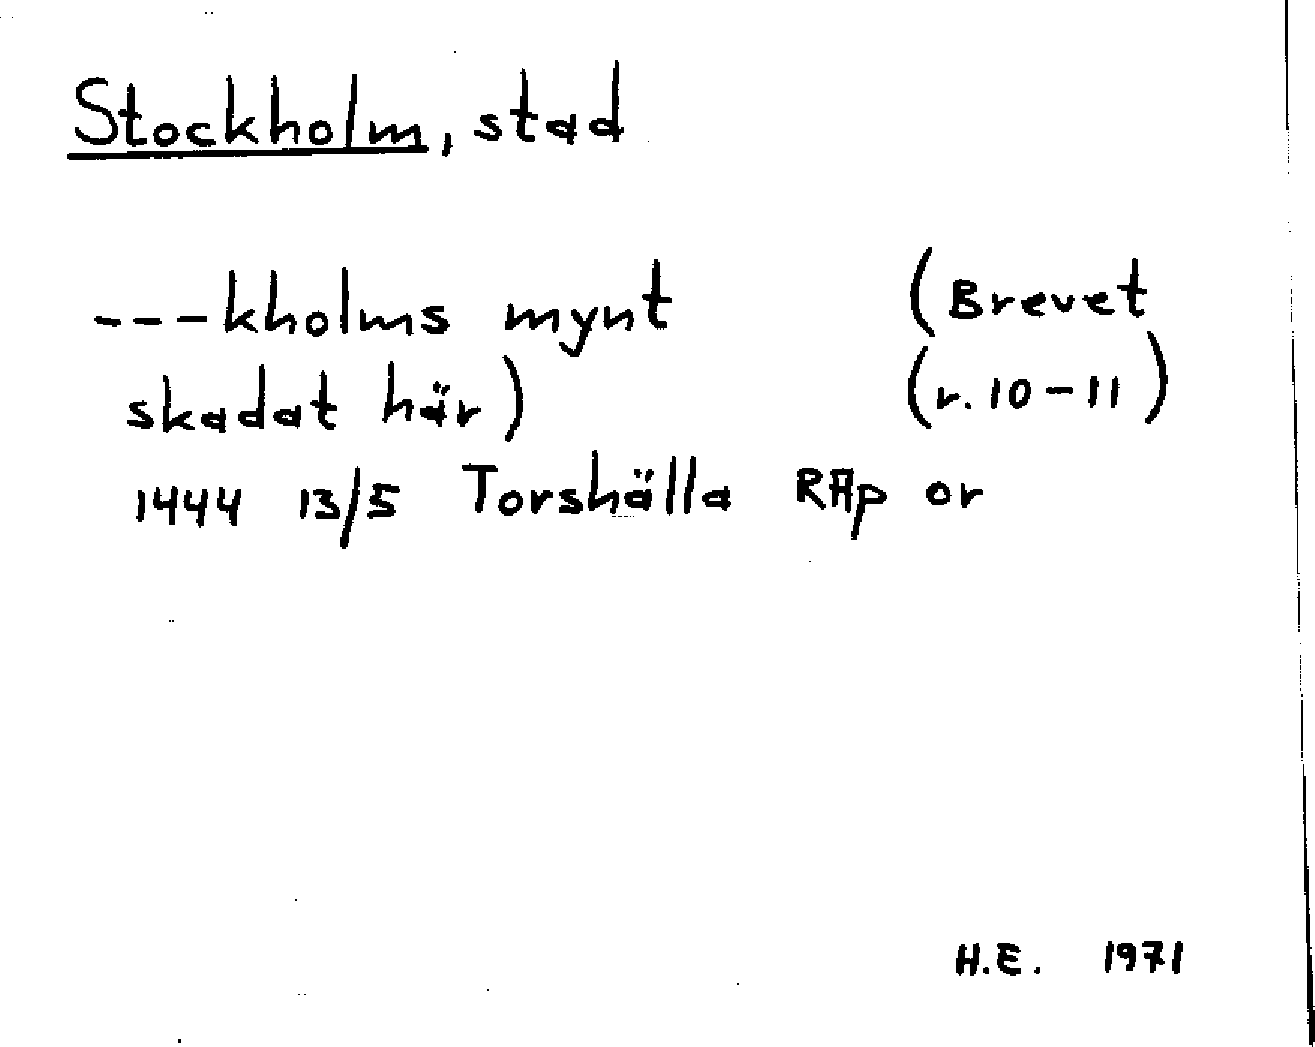 Stockholm, stad
---kholms mynt (Brevet
skadat här) (r. 10-11)
1444 13/5 Torshälla RAp or
H.E. 1971